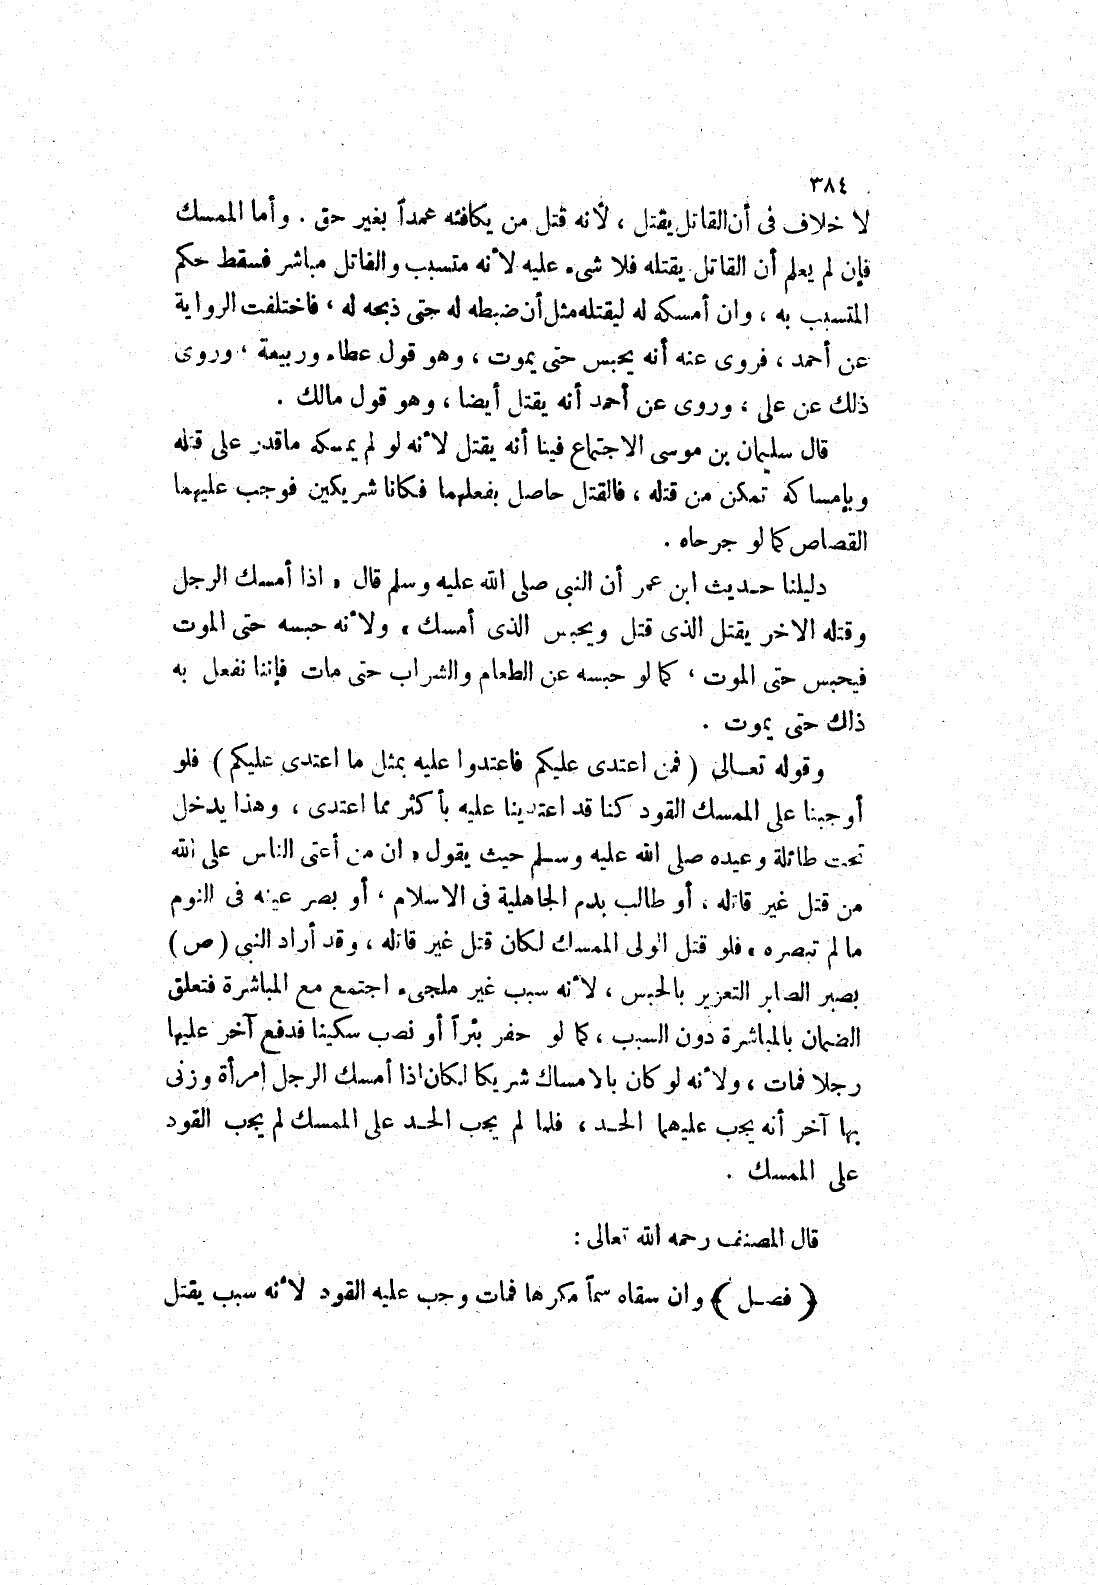 ٣٨٤
لا خلاف فى أن القاتل يقتل ، لأنه قتل من يكافئه عمداً بغير حق . وأما الممسك
فإن لم يعلم أن القاتل يقتله فلا شىء عليه لأنه متسبب والقاتل مباشر فسقط حكم
المتسبب به ، وان أمسكه له ليقتله مثل أن ضبطه له حتى ذبحه له ، فاختلفت الرواية
عن أحمد ، فروى عنه أنه يحبس حتى يموت ، وهو قول عطاء وربيعة ، وروى
ذلك عن على ، وروى عن أحمد أنه يقتل أيضا ، وهو قول مالك .
قال سليمان بن موسى الاجتماع فينا أنه يقتل لأنه لو لم يمسكه ماقدر على قتله
وبإمساكه تمكن من قتله ، فالقتل حاصل بفعلهما فكانا شريكين فوجب عليهما
القصاص كما لو جرحاه .
دليلنا حديث ابن عمر أن النبى صلى الله عليه وسلم قال « اذا أمسك الرجل
وقتله الاخر يقتل الذى قتل ويحبس الذى أمسك » ولأنه حبسه حتى الموت
فيحبس حتى الموت ، كما لو حبسه عن الطعام والشراب حتى مات فإننا نفعل به
ذاك حتى يموت .
وقوله تعالى ( فمن اعتدى عليكم فاعتدوا عليه بمثل ما اعتدى عليكم ) فلو
أوجبنا على الممسك القود كنا قد اعتدينا عليه بأكثر مما اعتدى ، وهذا يدخل
تحت طائلة وعيده صلى الله عليه وسلم حيث يقول « ان من أعتى الناس على الله
من قتل غير قاتله ، أو طالب بدم الجاهلية فى الاسلام ، أو بصر عينه فى النوم
ما لم تبصره » فلو قتل الولى الممسك لكان قتل غير قاتله ، وقد أراد النبى (ص)
بصبر الصابر التعزير بالحبس ، لأنه سبب غير ملجىء اجتمع مع المباشرة فتعلق
الضمان بالمباشرة دون السبب ، كما لو حفر بئراً أو نصب سكينا فدفع آخر عليها
رجلا فمات ، ولأنه لو كان بالامساك شريكا لكان اذا أمسك الرجل إمرأة وزنى
بها آخر أنه يجب عليهما الحد ، فلما لم يجب الحد على الممسك لم يجب القود
على الممسك .
قال المصنف رحمه الله تعالى :
( فصل ) وان سقاه سماً مكرها فمات وجب عليه القود لأنه سبب يقتل